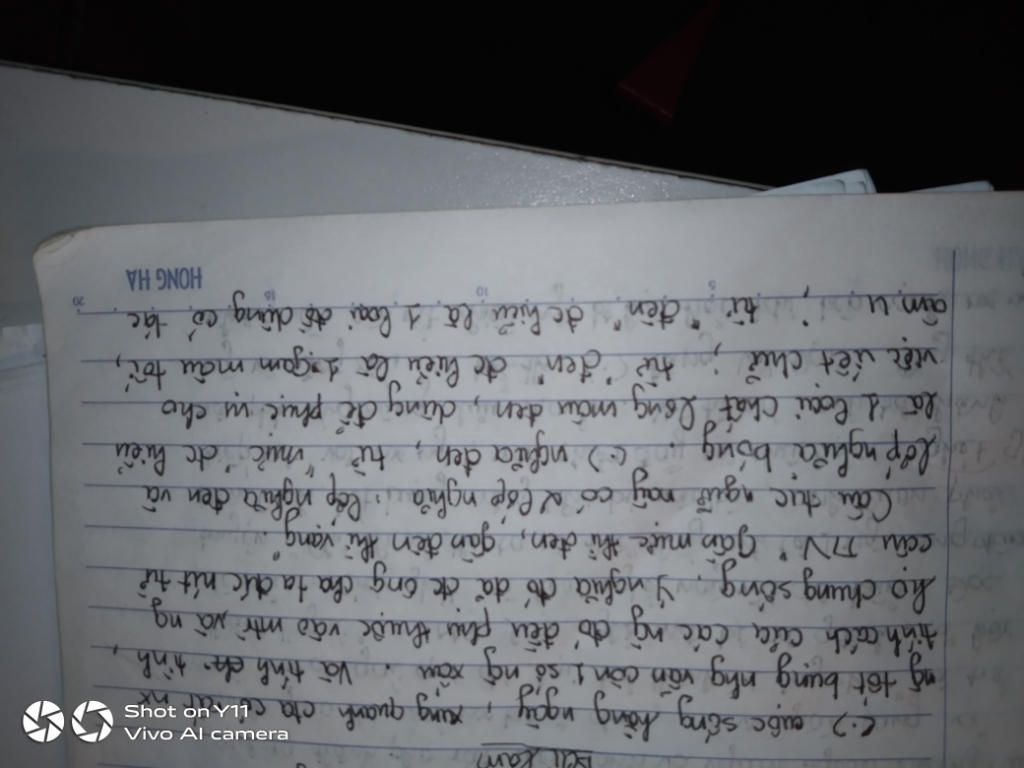 Bài làm
(-) cuộc sống hằng ngày, xung quanh cta có rất nx
ng tốt bụng nhg vẫn còn 1 số ng xấu. Và tính tình,
tính cách của các ng đó đều phụ thuộc vào mtr và ng
họ chung sống. Ý nghĩa đó đã đc ông cha ta đúc rút từ
câu TTN "Gần mực thì đen, gần đèn thì rạng"
Câu tục ngữ này có 2 lớp nghĩa: lớp nghĩa đen và
lớp nghĩa bóng. (-) nghĩa đen, từ "mực" đc hiểu
là 1 loại chất lỏng màu đen, dùng để phục vụ cho
việc viết chữ, từ "đen" đc hiểu là 1 gam màu tối,
âm u, từ "đèn" đc hiểu là 1 loại đồ dùng có tác
5 10 15 20
HONG HA
Shot on Y11
Vivo AI camera